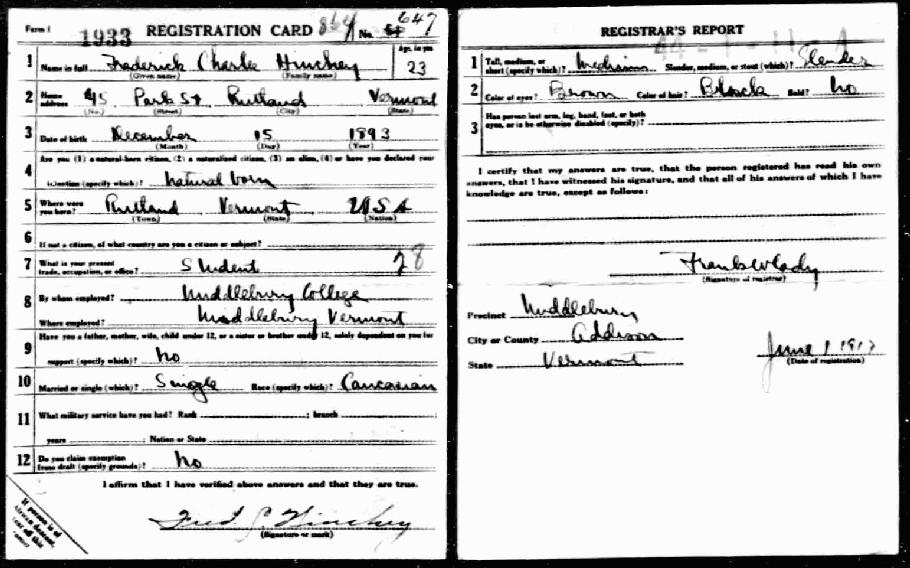 Form 1 1933 REGISTRATION CARD No. 647
1 Name in full Frederick Charles Hinchey Age, in yrs 23
(Given name) (Family name)
2 Home address 45 Park St Rutland Vermont
(No.) (Street) (City) (State)
3 Date of birth December 15 1893
(Month) (Day) (Year)
4 Are you (1) a natural-born citizen, (2) a naturalized citizen, (3) an alien, (4) or have you declared your
intention (specify which)? natural born
5 Where were you born? Rutland Vermont USA
(Town) (State) (Nation)
6 If not a citizen, of what country are you a citizen or subject?
7 What is your present trade, occupation, or office? Student 28
8 By whom employed? Middlebury College
Where employed? Middlebury Vermont
9 Have you a father, mother, wife, child under 12, or a sister or brother under 12, solely dependent on you for
support (specify which)? No
10 Married or single (which)? Single Race (specify which)? Caucasian
11 What military service have you had? Rank ; branch ;
years ; Nation or State
12 Do you claim exemption from draft (specify grounds)? No
I affirm that I have verified above answers and that they are true.
Fred C Hinchey
(Signature or mark)
If person is of
African descent,
tear off this
corner
REGISTRAR'S REPORT
1 Tall, medium, or short (specify which)? Medium Slender, medium, or stout (which)? Slender
2 Color of eyes? Brown Color of hair? Black Bald? No
3 Has person lost arm, leg, hand, foot, or both
eyes, or is he otherwise disabled (specify)?
I certify that my answers are true, that the person registered has read his own
answers, that I have witnessed his signature, and that all of his answers of which I have
knowledge are true, except as follows:
(Signature of registrar)
Precinct Middlebury
City or County Addison
State Vermont
June 1 1917
(Date of registration)